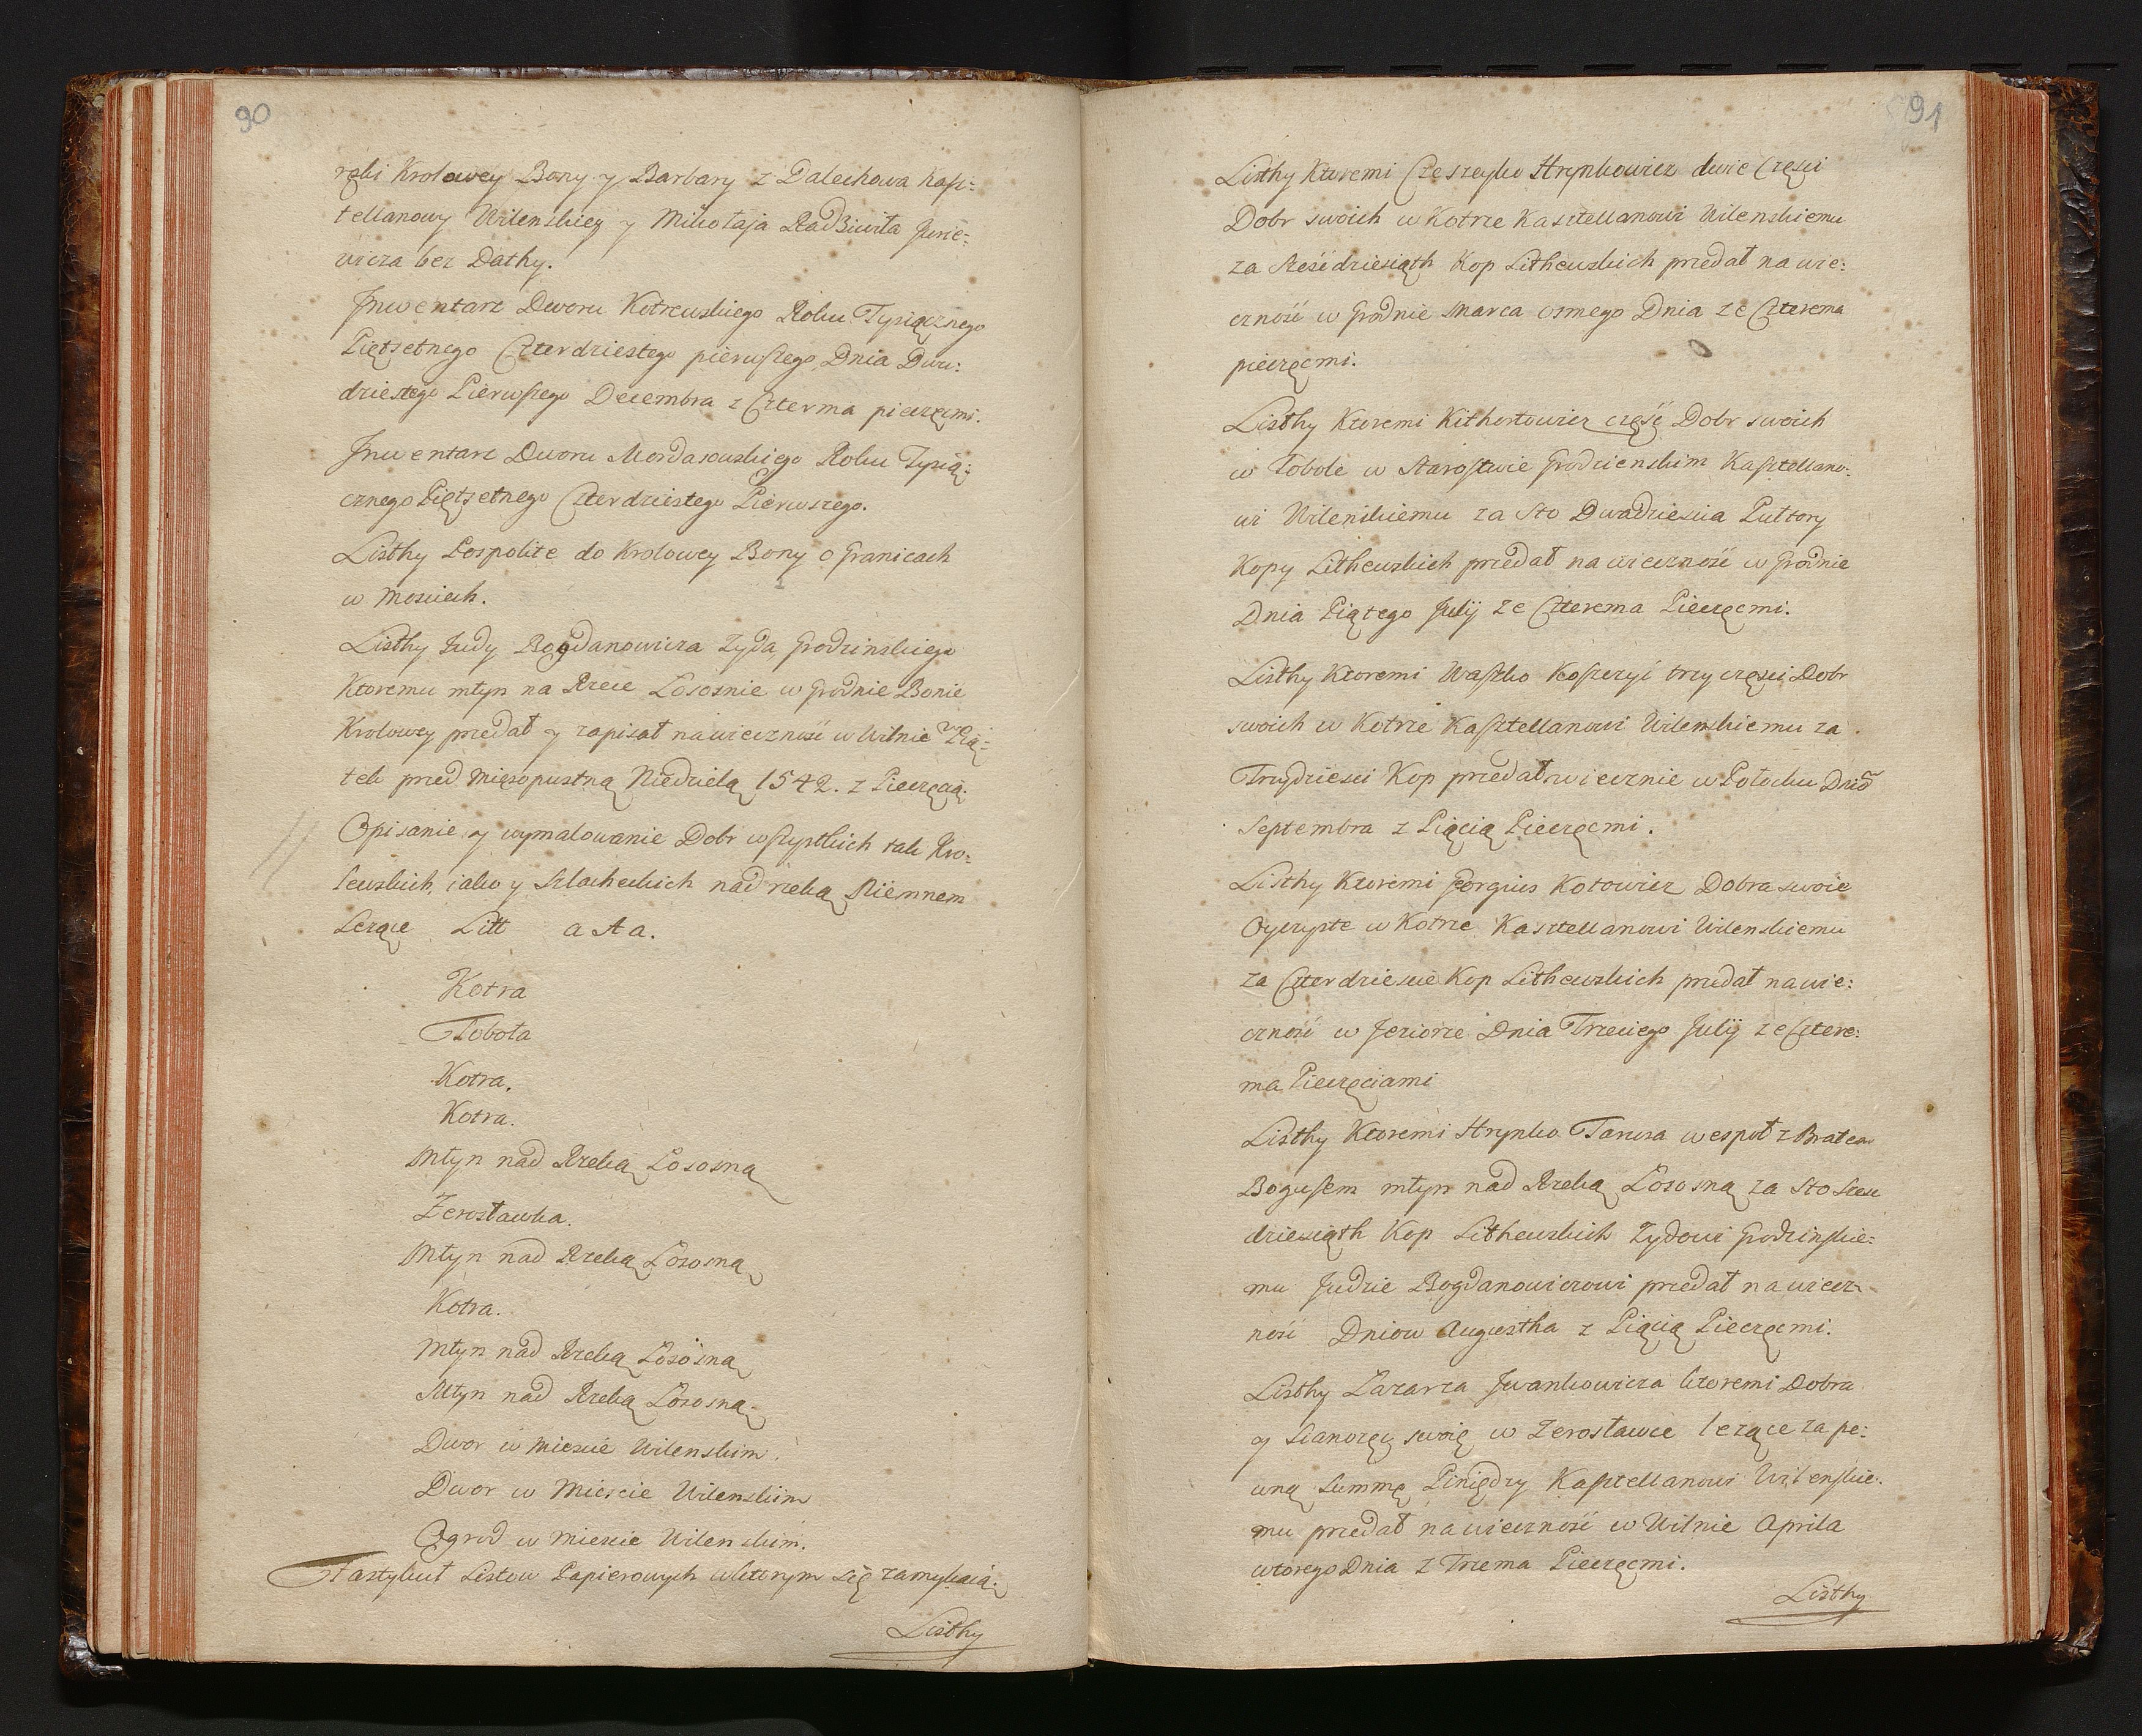 90
rębi Krolowey Bony y Barbary z Dalechowa Kasz:
tellanowy Wilenskiey y Mikołaja Radziwiła Jurie:
wicza bez Dathy.
Jnwentarz Dworu Kotrewskiego Roku Tysiącznego
Piętsetnego Czterdziestego pierwszego Dnia Dwu:
dziestego Pierwszego Decembra z Czterma pieczęcmi.
Jnwentarz Dworu Mordasowskiego Roku Tysią:
cznego Piętsetnego Czterdziestego Pierwszego.
Listhy Pospolite do Krolowey Bony o Granicach
w Mosciech.
Listhy Judy Bogdanowicza Zyda Grodzinskiego
Ktoremu młyn na Rzece Lososnie w Grodnie Bonie
Krolowey przedał y zapisał na wieczność w Wilnie w Pią:
tek przed Mięsopustną Niedzielą 1542. z Pieczęcią.
Opisanie y wymalowanie Dobr wszystkich tak Kro:
lewskich, iako y Szlacheckich nad rzeką Niemnem
Lezące Litt a A a.
Kotra
Tobola
Kotra.
Kotra.
Młyn nad Rzeką Lososną
Zerosławka.
Młyn nad Rzeką Lososną
Kotra.
Młyn nad Rzeką Lososną
Młyn nad Rzeką Lososną.
Dwor w Miescie Wilenskim.
Dwor w Miescie Wilenskim
Ogrod w Miescie Wilenskim.
Fastykuł Listow Papierowych w ktorym się zamykaią.
Listhy
91
Listhy Ktoremi Czeszeyko Hrynkowicz dwie Części
Dobr swoich w Kotrze Kasztellanowi Wilenskiemu
za sześćdziesiąth Kop Lithewskich przedał na wie:
czność w Grodnie Marca osmego Dnia ze Czterema
pieczęcmi.
Listhy Ktoremi Kithortowicz część Dobr swoich
w Tobole w Starostwie Grodzienskim Kasztellano:
wi Wilenskiemu za Sto Dwadziescia Pułtory
Kopy Lithewskich przedał na wieczność w Grodnie
Dnia Piątego Julij ze Czterema Pieczęcmi.
Listhy Ktoremi Waszko Koszczyć trzy części Dobr
swoich w Kotrze Kasztellanowi Wilenskiemu za
Trzydziesci Kop przedał wiecznie w Połocku Dnia
Septembra z Pięcią Pieczęcmi.
Listhy Ktoremi Georgius Kotowicz Dobra swoie
Oyczyste w Kotrze Kasztellanowi Wilenskiemu
za Czterdziescie Kop Lithewskich przedał na wie:
czność w Jeziorze Dnia Trzeciego Julij ze Cztere:
ma Pieczęciami
Listhy Ktoremi Hrynko Tarusa wespoł z Bratem
Boguszem młyn nad Rzeką Lososną za Sto Szesc
dziesiąth Kop Lithewskich Zydowi Grodzinskie:
mu Judzie Bogdanowiczowi przedał na wiecz-
ność Dniow Augustha z Pięcią Pieczęcmi.
Listhy Lazarza Jwankowicza ktoremi Dobra
y Sianozęc swoię w Zerosławce lezące za pe:
wną Summę Piniędzy Kasztellanowi Wilenskie:
mu przedał na wieczność w Wilnie Aprila
wtorego Dnia z Trzema Pieczęcmi.
Listhy